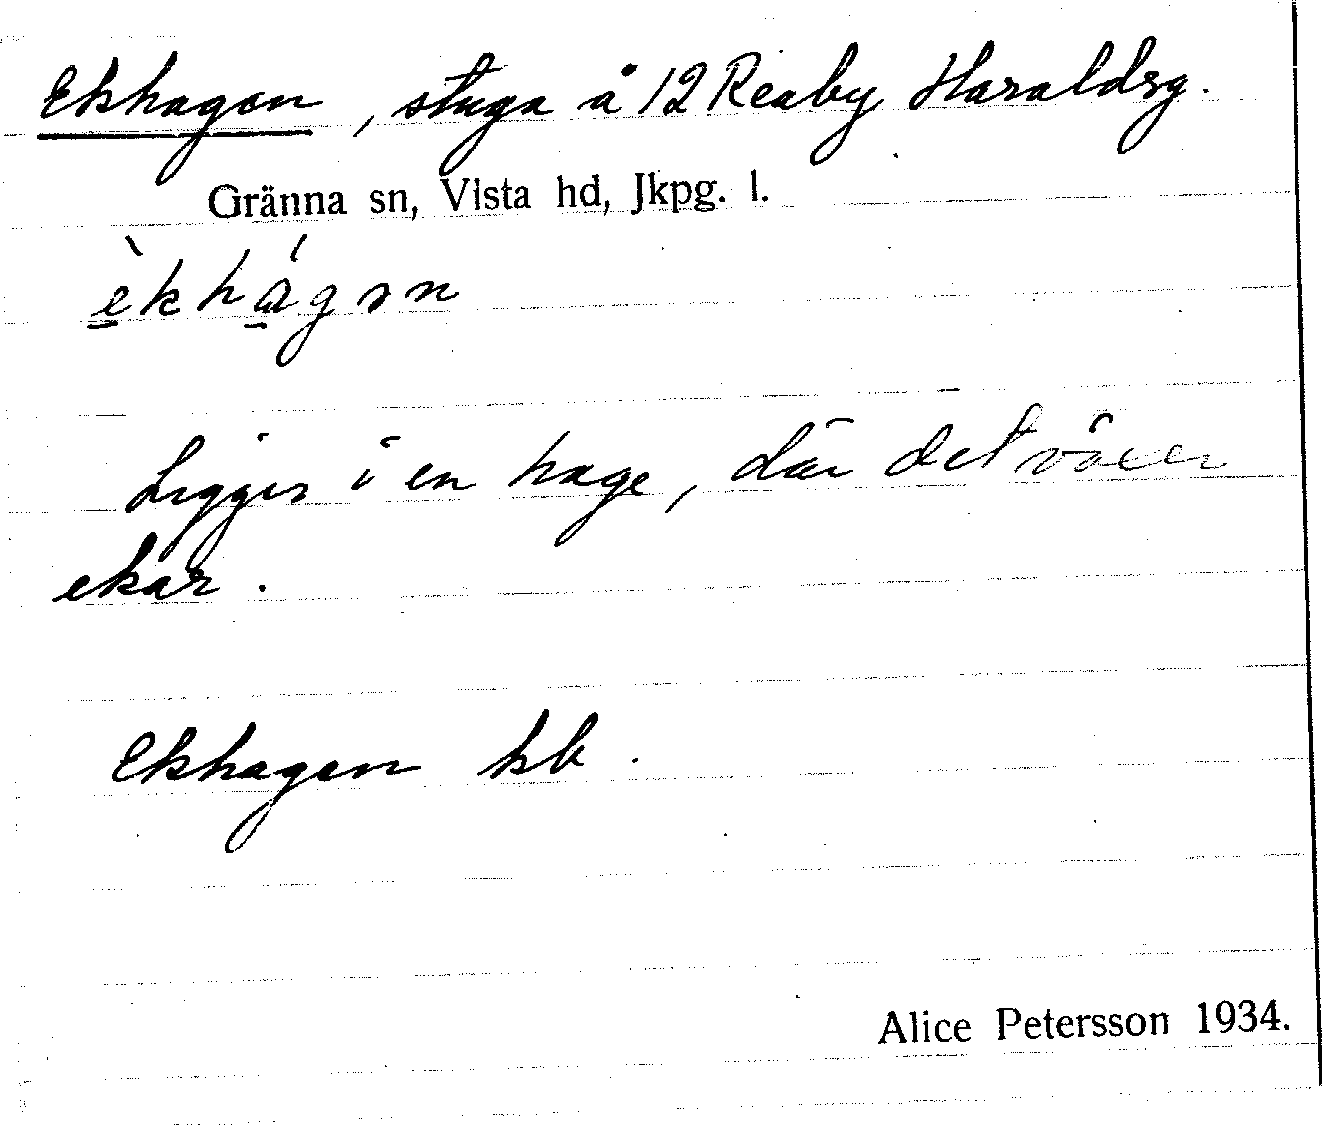 Ekhagen, stuga å 12 Reaby Haraldsg.
Gränna sn, Vista hd, Jkpg. l.
èkhágən
Ligger i en hage, där det växer
ekar.
Ekhagen kb.
Alice Petersson 1934.